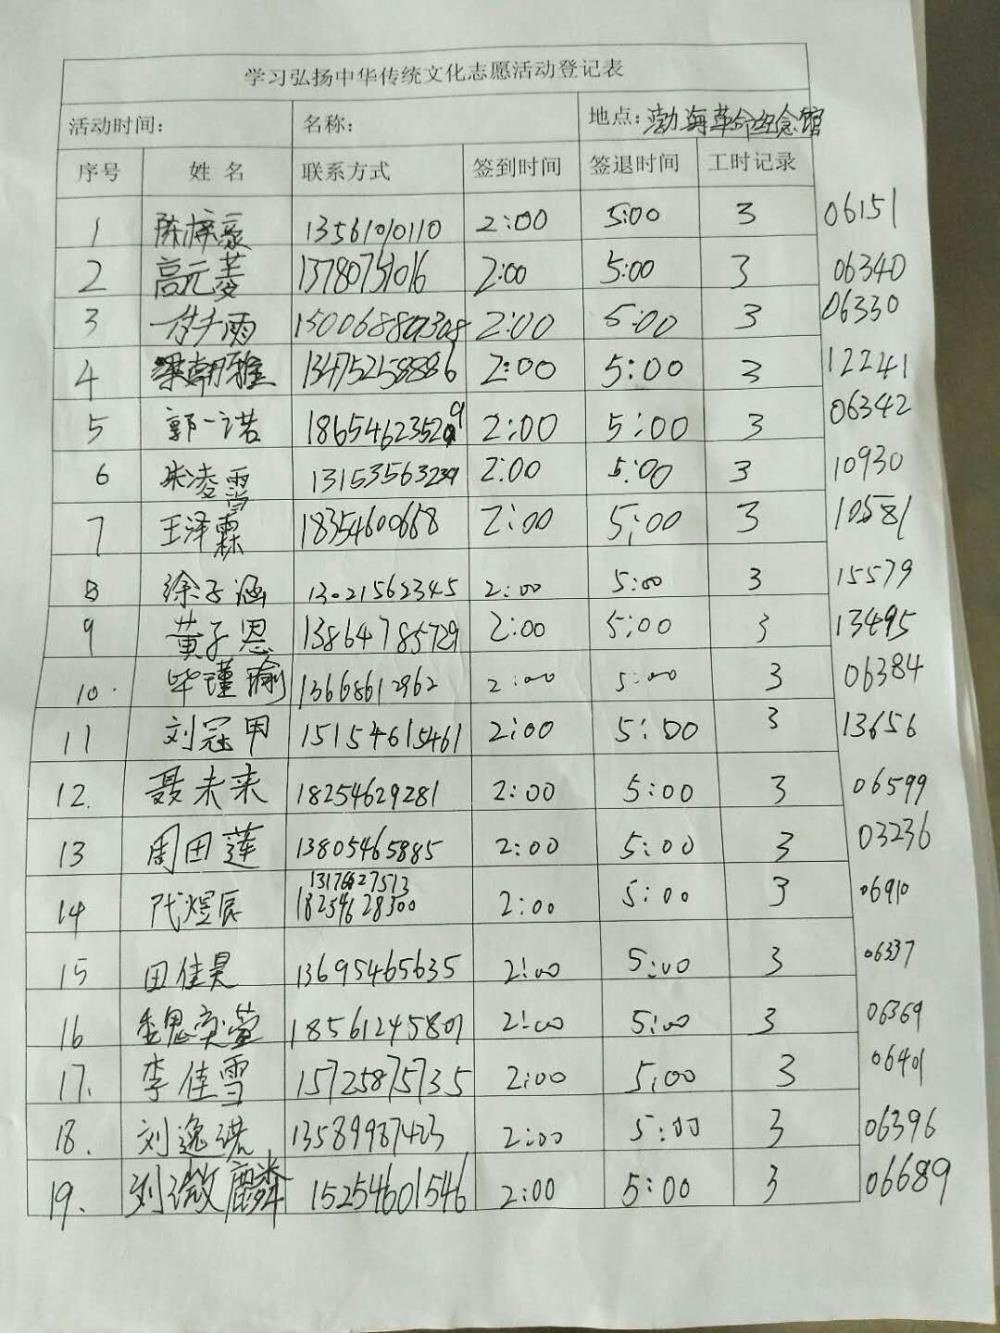 学习弘扬中华传统文化志愿活动登记表
活动时间: 名称: 地点: 渤海革命纪念馆
序号 姓名 联系方式 签到时间 签退时间 工时记录
1 陈梓豪 13561010110 2:00 5:00 3 06151
2 高元菱 13780751016 2:00 5:00 3 06340
3 2:00 5:00 3 06330
4 梁朝雅 13475258886 2:00 5:00 3 12241
5 郭一诺 2:00 5:00 3 06342
6 朱凌雪 13153563239 2:00 5:00 3 10930
7 王泽霖 18354600668 2:00 5:00 3 10581
8 徐子涵 13021562345 2:00 5:00 3 15579
9 黄子恩 13864785729 2:00 5:00 3 13495
10. 毕瑾瑜 13668612962 2:00 5:00 3 06384
11 刘冠甲 15154615461 2:00 5:00 3 13656
12. 聂未来 18254629281 2:00 5:00 3 06599
13 周田莲 13805465885 2:00 5:00 3 03236
13176627513
14 代煜辰 18254628300 2:00 5:00 3 06910
15 田佳昊 13695465635 2:00 5:00 3 06337
16 18561245801 2:00 5:00 3 06369
17. 李佳雪 15725875735 2:00 5:00 3 06401
18. 刘逸诺 13589987423 2:00 5:00 3 06396
19. 刘微麟 15254601546 2:00 5:00 3 06689